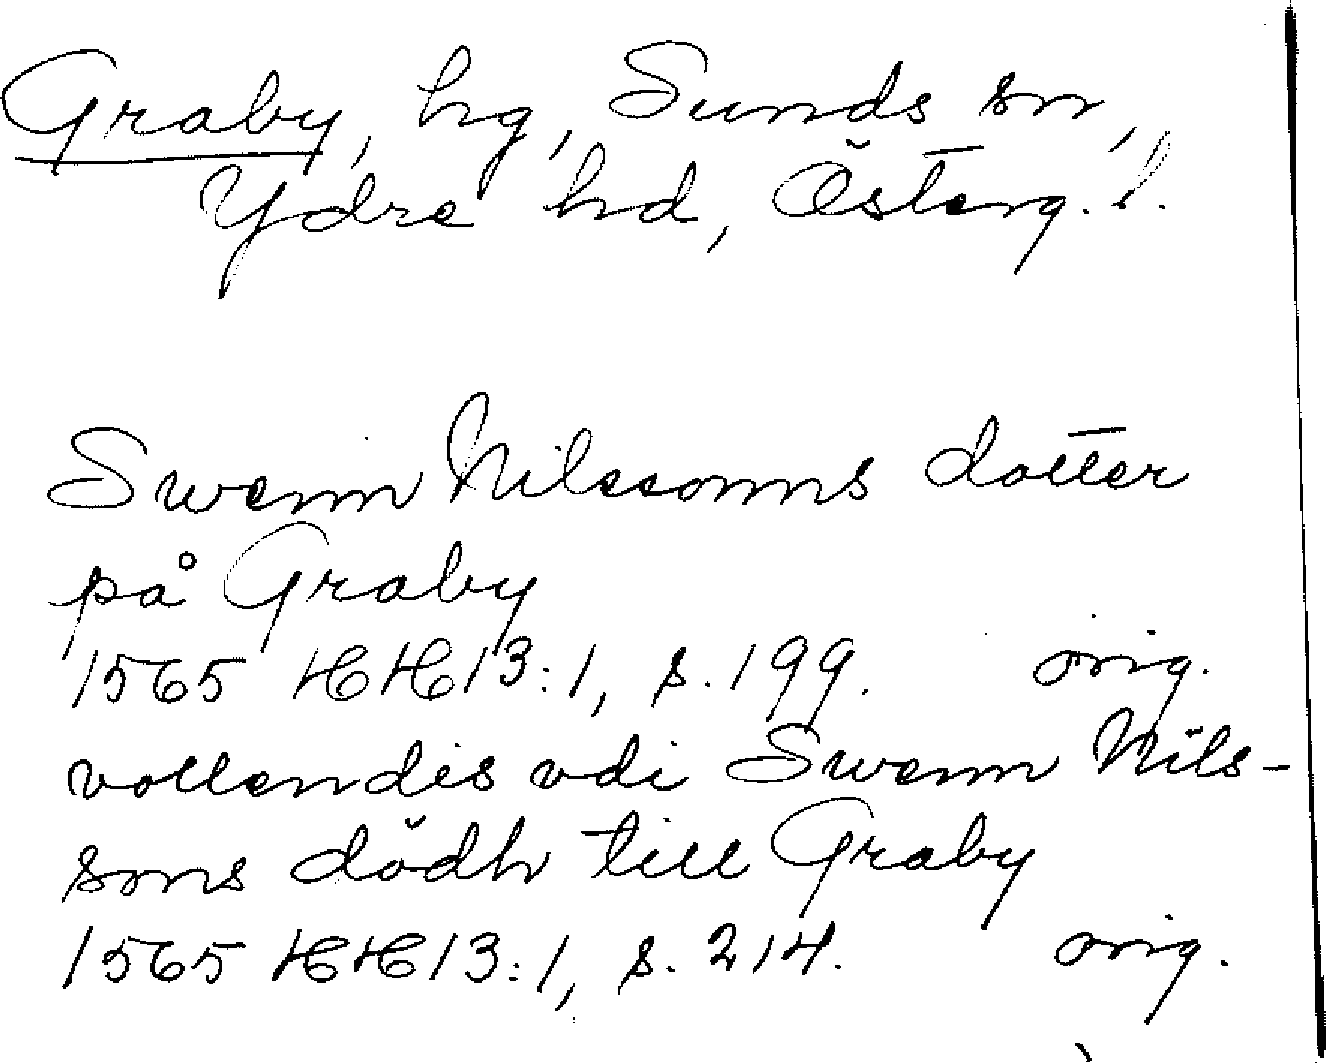 Graby, hg, Sunds sn,
Ydre hd, Österg. l.
Swenn Nilssonns dotter
på Graby
1565 HH13:1, s. 199. orig.
vollendis vdi Swenn Nils-
sons dödh till Graby
1565 HH13:1, s. 214. orig.